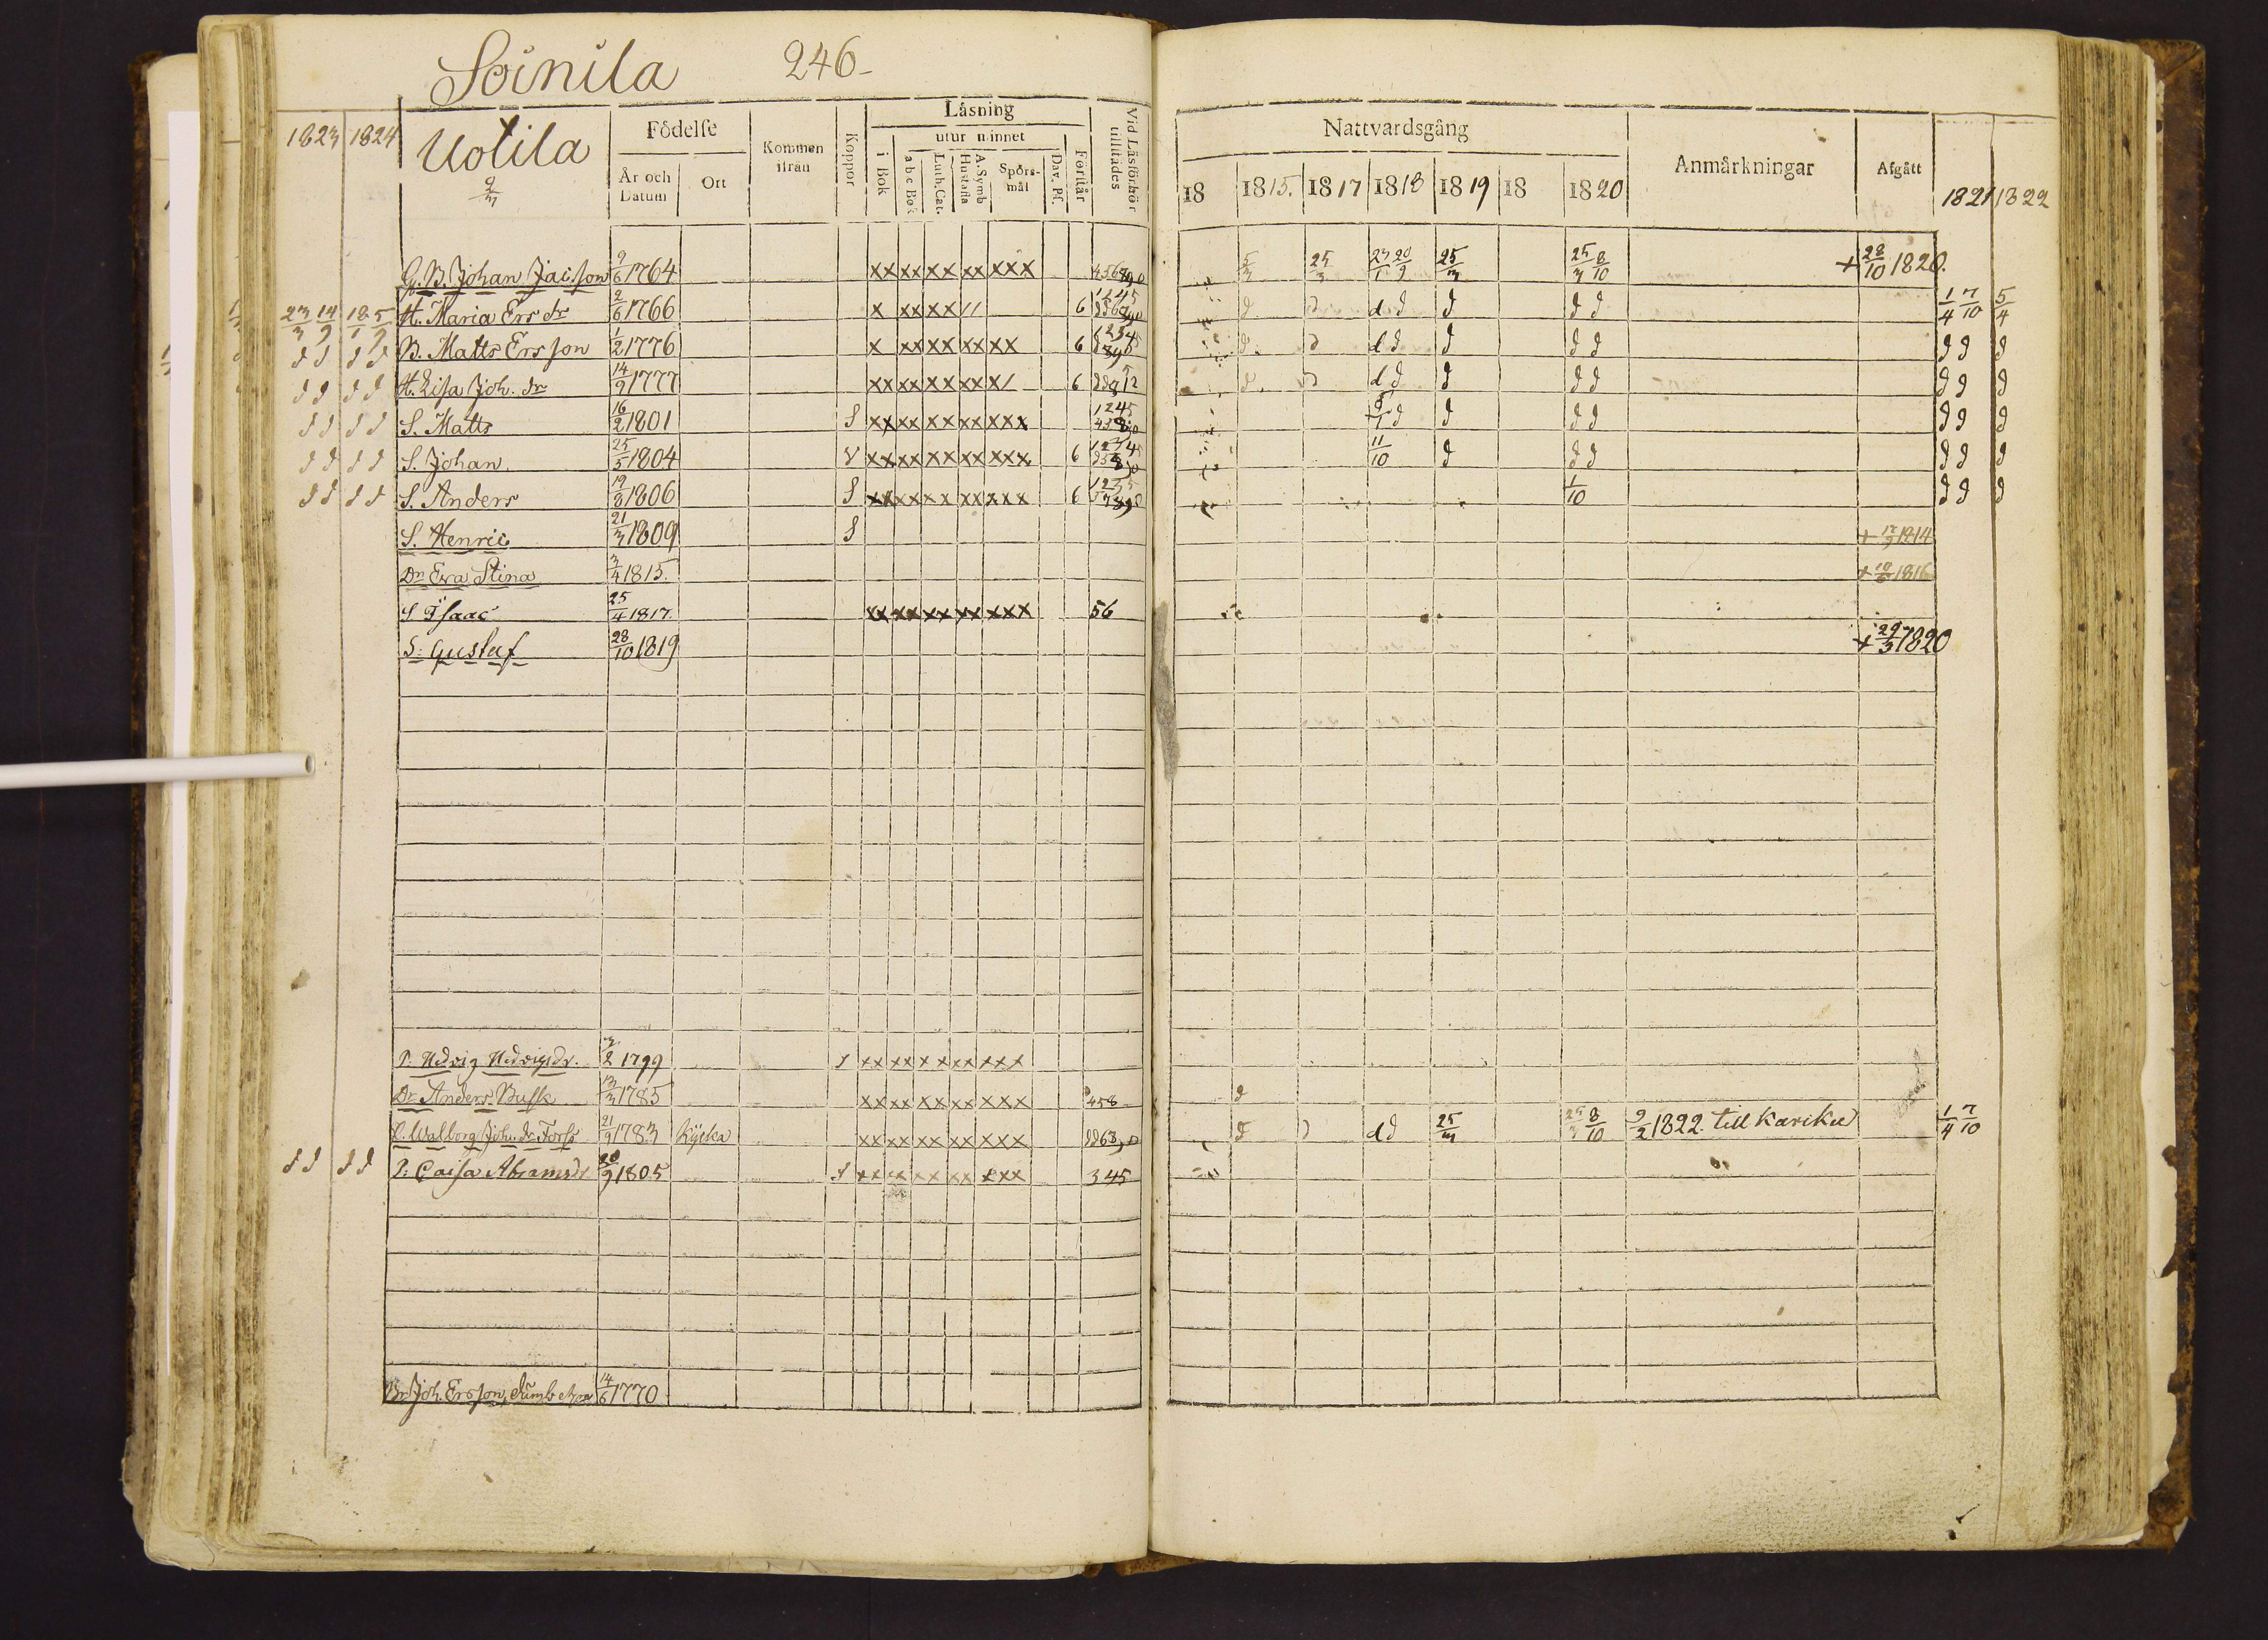 Soinila 246
1823 1824 Uotila 2/3 Födelse År och Datum Ort Kommen ifrån Koppor Läsning i Bok utur minnet abc Bok Luth. Cat. A. Symb Hustafla Spörsmål Dav. Ps. Förstår Vid Läsförhör tillstädes Nattvardsgång 18 1815. 1817 1818 1819 18 1820 Anmärkningar Afgått 1821 1822
G. B. Johan Jacsson 9/6 1764 xx xx xx xx xxx 5/3 25/3 25/3 25/3 8/10 + 28/10 1820.
23/3 14/9 18/1 5/9 H. Maria Ers dr 2/6 1766 x xx xx // 6 d d d d d d d 1/4 7/10 5/4
d d d d B. Matts Ersson 1/2 1776 x xx xx xx xx 6 d d d d d d d d d d
d d d d H. Lisa Joh. dr 14/9 1777 xx xx xx xx x/ 6 d d d d d d d d d d
d d d d S. Matts 16/2 1801 S xx xx xx xx xxx d d d d d d d
d d d d S. Johan 25/5 1804 V xx xx xx xx xxx 6 11/10 d d d d d d
d d d d S. Anders 19/8 1806 S xx xx xx xx xxx 6 1/10 d d d
S. Henric 21/3 1809 S + 1814
Dr Eva Stina 3/4 1815. + 1816
S Isaac 25/4 1817 xx xx xx xx xxx 56
S. Gustaf 28/10 1819 + 29/3 1820
P. Hedvig Hedvigsdr. 1799 S xx xx xx xx xxx
Dr. Anders Busk 13/3 1785 xx xx xx xx xxx 458 d
P. Walborg Joh. dr Forss 21/9 1783 Kycka xx xx xx xx xxx d d d 25/3 25/3 8/10 9/2 1822 till Kariku 1/4 7/10
d d d d P. Caisa Abramsdr 20/9 1805 S xx xx xx xx xxx 345
Br Joh. Ersson, dumb 14/6 1770